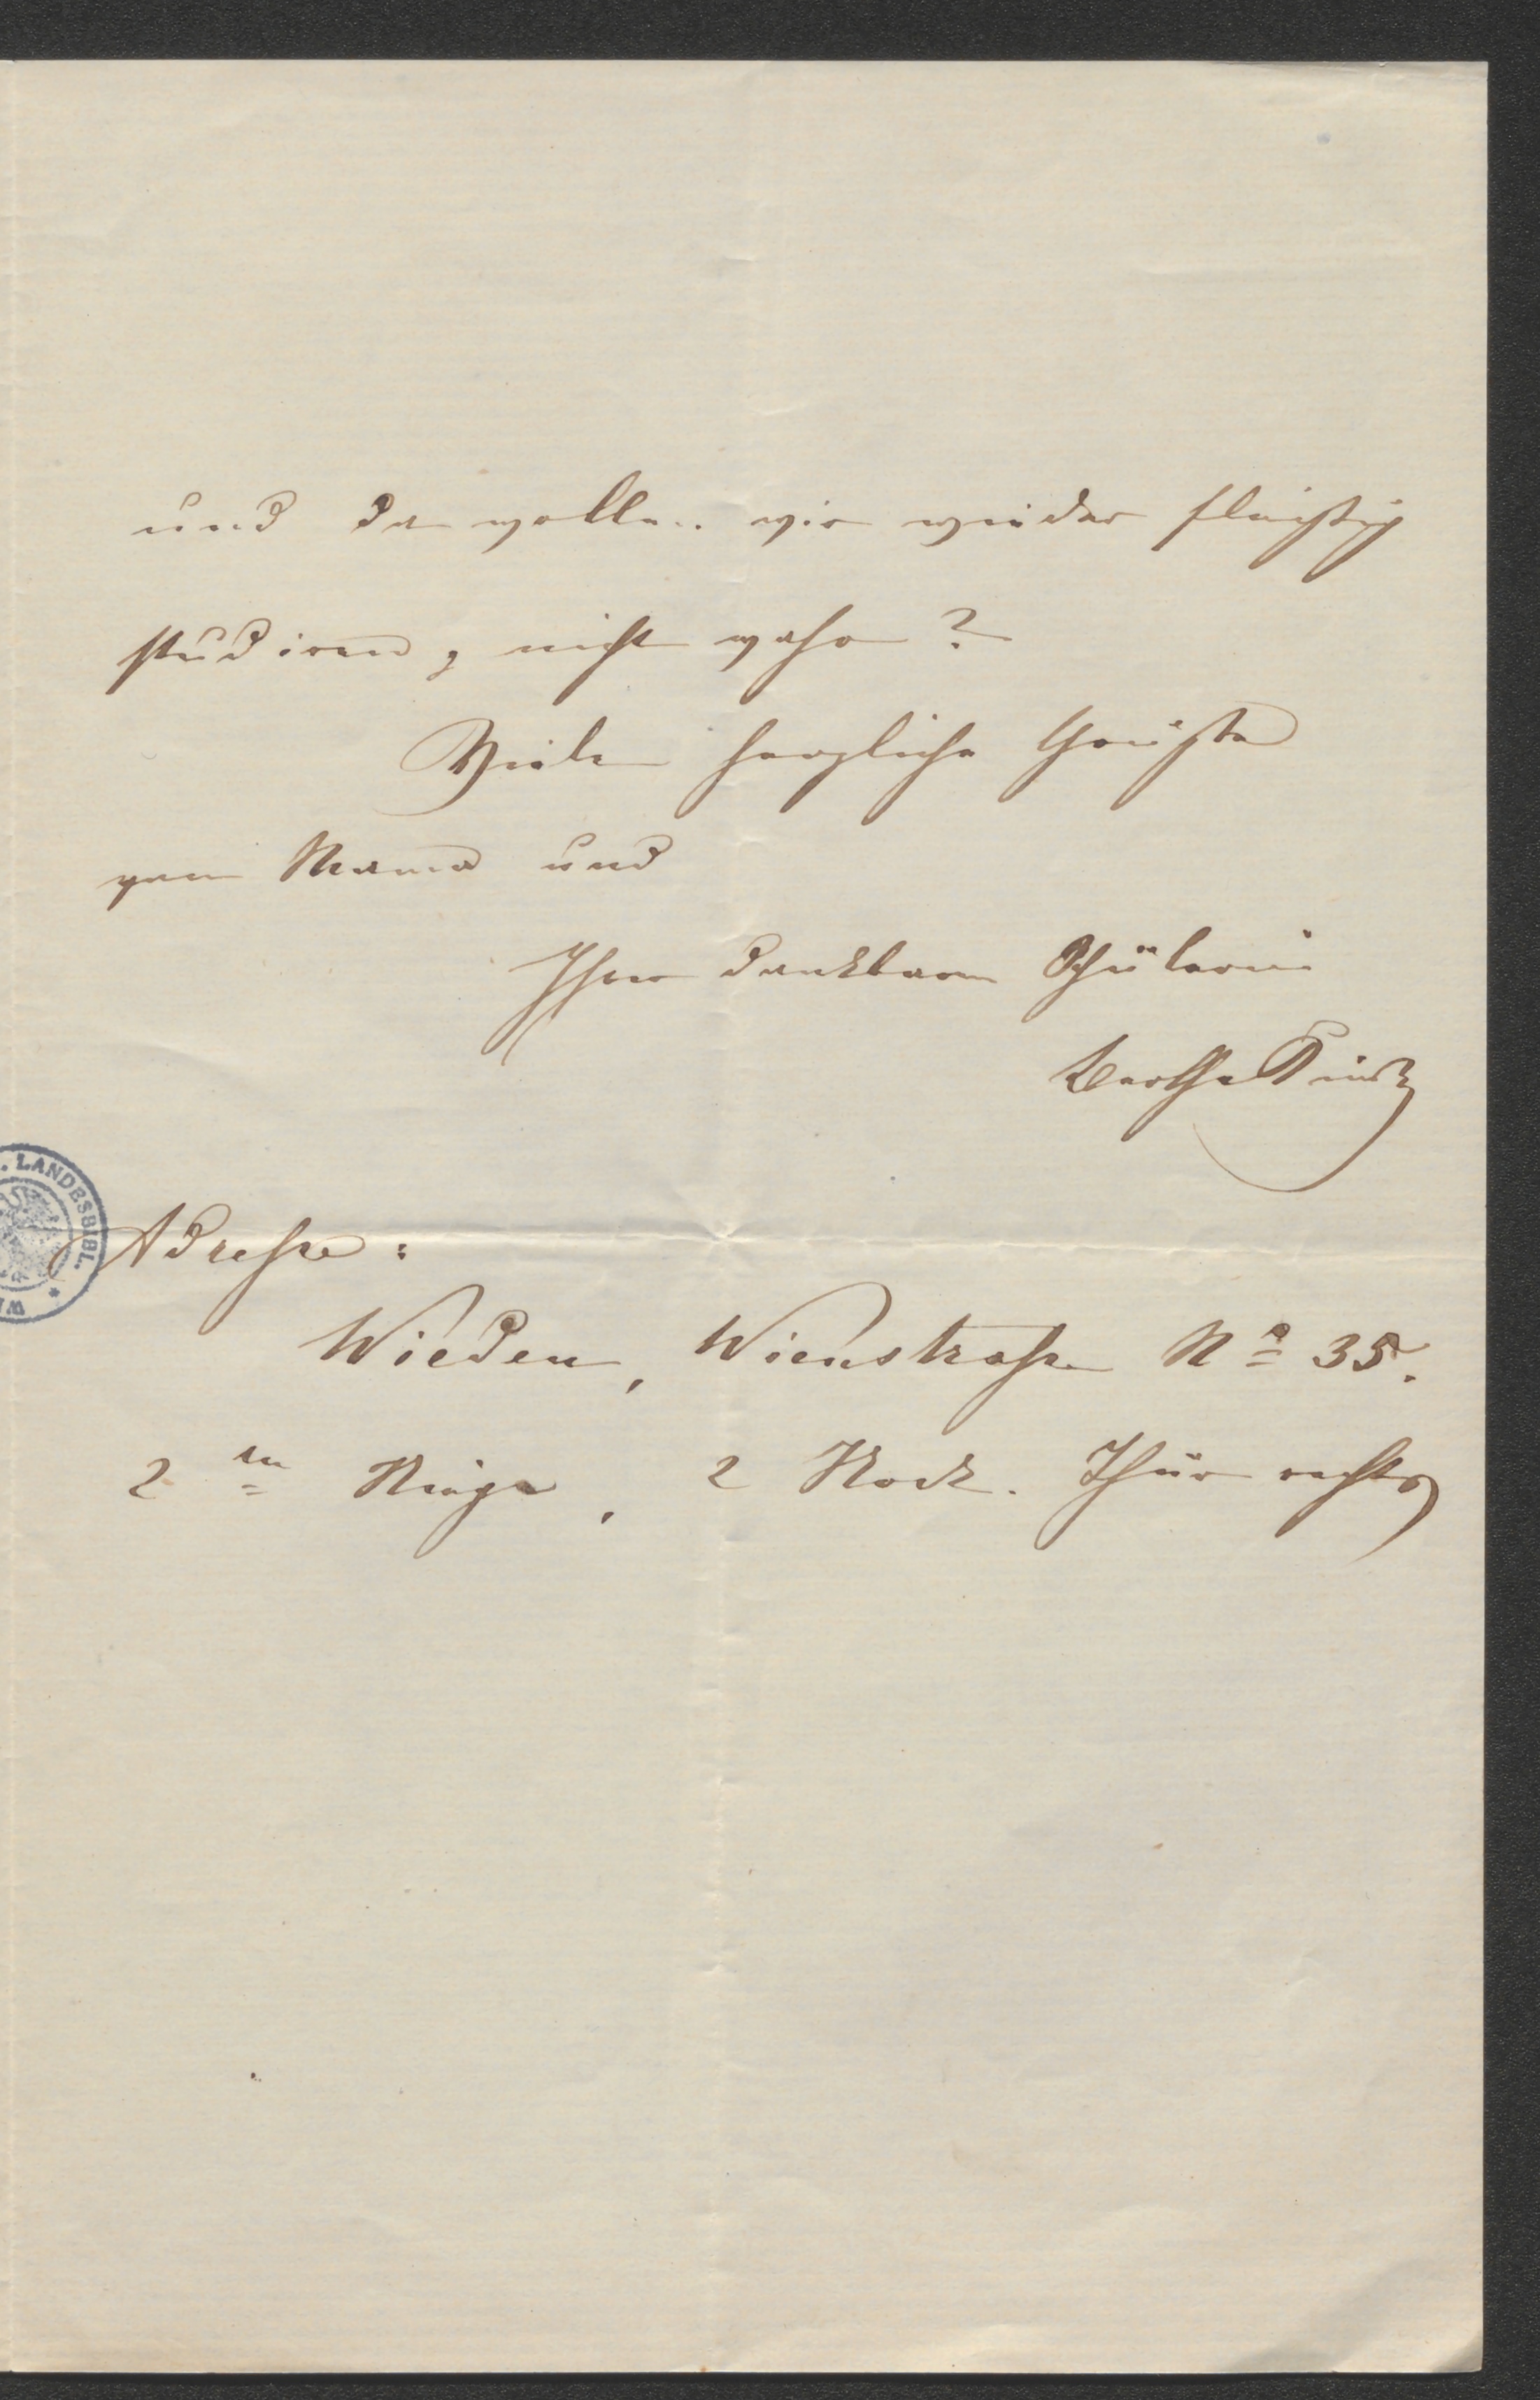 und da wollen wir wieder fleißig
studiren, nicht wahr?
Viele herzliche Grüße
von Mama und
Ihrer dankbaren Schülerin
Bertha
. LANDESBIBL. *
Adresse:
Wieden, Wienstraße No 35.
2te Stiege, 2 Stock. Thür rechts